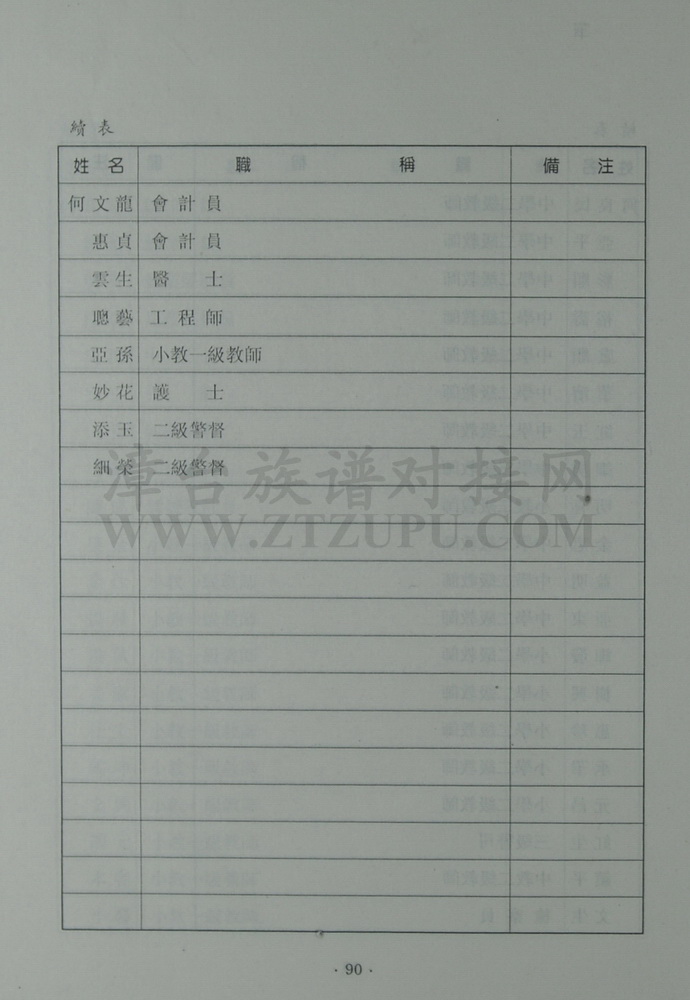 續表
姓名 職稱 備注
何文龍 會計員
惠貞 會計員
雲生 醫士
聰藝 工程師
亞孫 小教一級教師
妙花 護士
添玉 二級警督
細榮 二級警督
漳台族谱对接网
WWW.ZTZUPU.COM
·90·